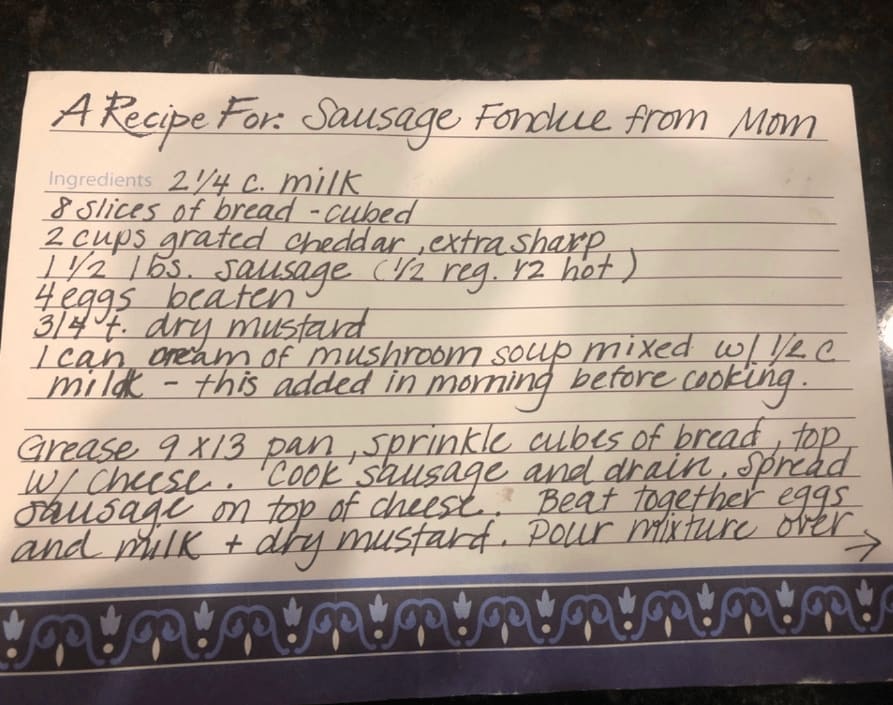 A Recipe For: Sausage Fondue from Mom
Ingredients 2 1/4 c. milk
8 slices of bread - cubed
2 cups grated cheddar, extra sharp
1 1/2 lbs. sausage (1/2 reg. 1/2 hot)
4 eggs beaten
3/4 t. dry mustard
1 can cream of mushroom soup mixed w/ 1/2 c
milk - this added in morning before cooking.
Grease 9 x 13 pan, sprinkle cubes of bread, top
w/ cheese. Cook sausage and drain. Spread
sausage on top of cheese. Beat together eggs
and milk + dry mustard. Pour mixture over →